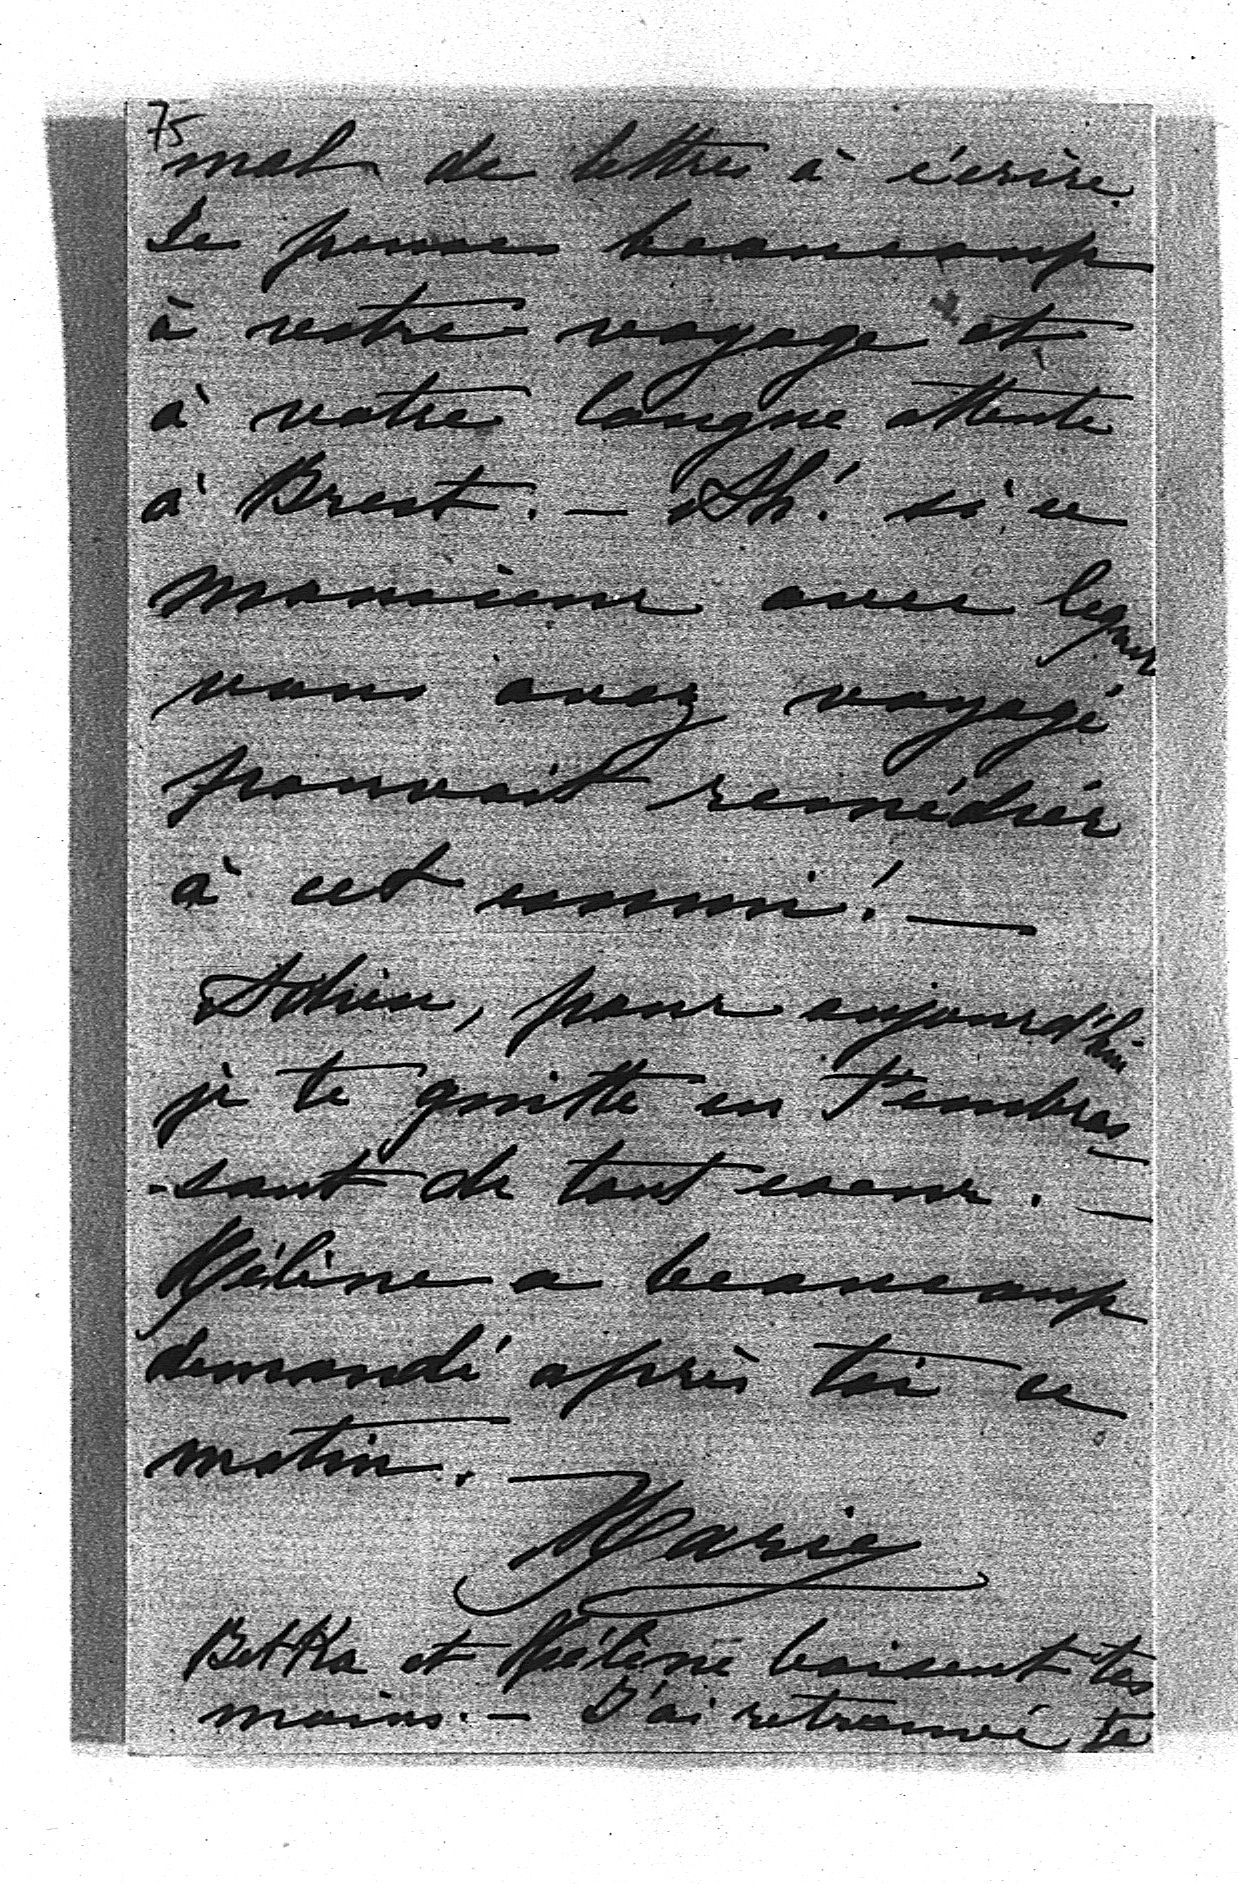 75
mal de lettres à écrire.
Je pense beaucoup
à votre voyage et
à votre longue attente
à Brest. — Ah! si ce
monsieur avec lequel
vous avez voyagé
pouvait remédier
à cet ennui! —
Adieu, pour aujourd'hui
je te quitte en t'embras-
-sant de tout coeur. —
Hélène a beaucoup
demandé après toi ce
matin. —
Marie
Betka et Hélène baisent tes
mains. — J'ai retrouvé ta